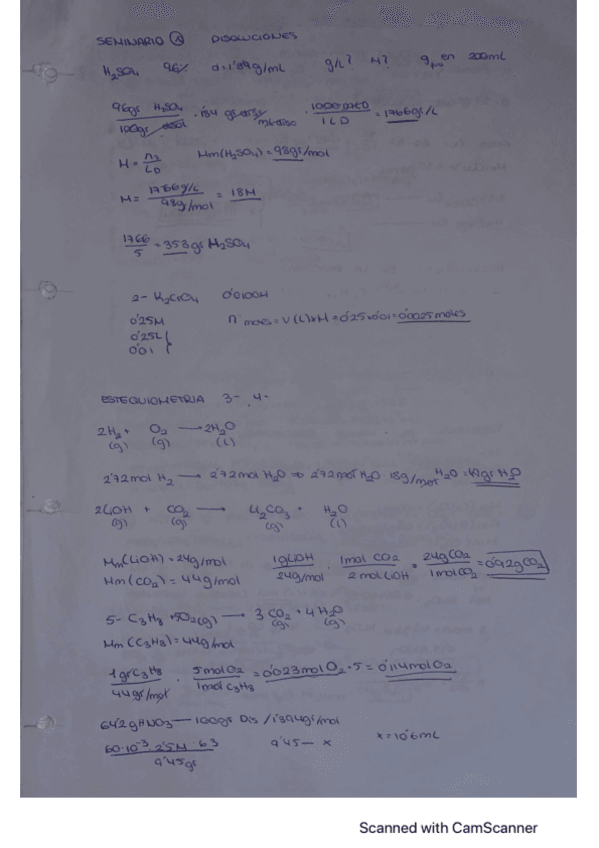 SEMINARIO DISOLUCIONES
H₂SO₄ 96% d=1'84g/mL g/L? M? g en 200mL
96gs H₂SO₄ / 100gs disol · 1000 / 1 L D = 1766gs/L
M = n / LD Mm(H₂SO₄) = 98gs/mol
M = 1766g/L / 98g/mol = 18M
1766 / 5 = 353gs H₂SO₄
2- K₂CrO₄ 0'0100M
0'25M n moles = V(L)xM = 0'25x0'01 = 0'0025 moles
0'25L
0'01
ESTEQUIOMETRIA 3- 4-
2H₂ + O₂ → 2H₂O
(g) (g) (l)
2'72mol H₂ → 2'72mol H₂O ⇒ 2'72mol H₂O · 18g/mol H₂O = 49gs H₂O
2LiOH + CO₂ → Li₂CO₃ + H₂O
(g) (g) (g) (l)
Mm(LiOH) = 24g/mol 1gLiOH / 24g/mol · 1mol CO₂ / 2mol LiOH = 24gCO₂ / 1molCO₂ = 0'92gCO₂
Mm(CO₂) = 44g/mol
5- C₃H₈ + 5O₂(g) → 3CO₂ + 4H₂O
(g) (g)
Mm(C₃H₈) = 44g/mol
1grC₃H₈ / 44gr/mol · 5molO₂ / 1mol C₃H₈ = 0'023molO₂ · 5 = 0'114molO₂
64'2gHNO₃ — 100gs Dis / 1'394gs/mol
60·10⁻³ 2'5M 63 / 9'45gs 9'45 — x x = 10'6mL
Scanned with CamScanner